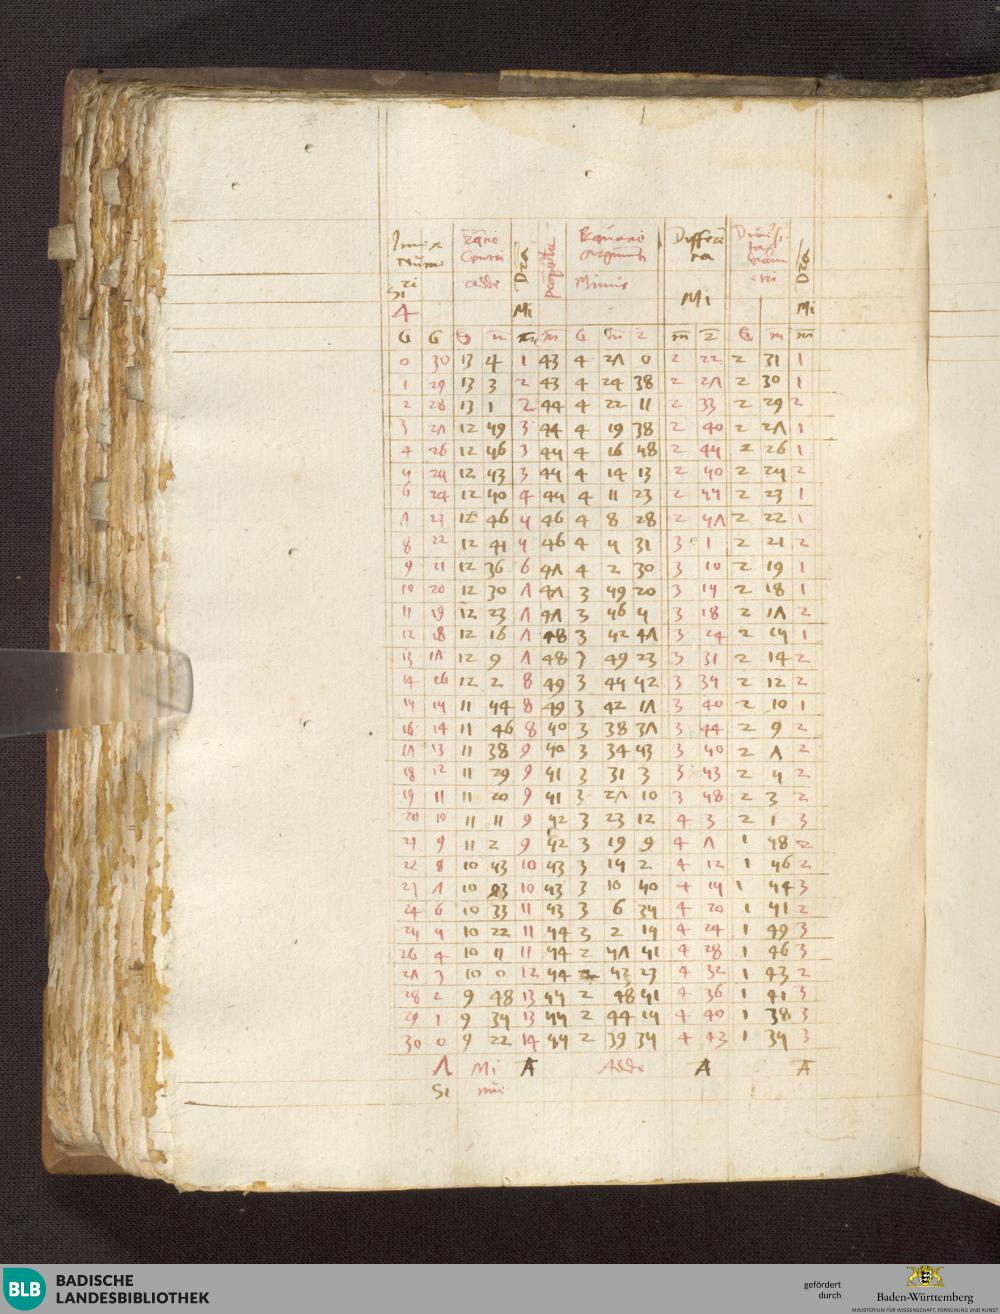 Equatio Centri Adde
Dra
proportio
Equatio Argumenti Minuit
Differentia
Diversitas Diametri
Dra
Si
4 Mi Mi Mi
G G G m m m G m 2 m 2 G m m
0 30 13 4 1 43 4 27 0 2 22 2 31 1
1 29 13 3 2 43 4 24 38 2 27 2 30 1
2 28 13 1 2 44 4 22 11 2 33 2 29 2
3 27 12 59 3 44 4 19 38 2 40 2 27 1
4 26 12 56 3 44 4 16 58 2 45 2 26 1
5 25 12 53 3 45 4 14 13 2 50 2 25 2
6 24 12 50 4 45 4 11 23 2 55 2 23 1
7 23 12 46 5 46 4 8 28 2 57 2 22 1
8 22 12 41 5 46 4 5 31 3 1 2 21 2
9 21 12 36 6 47 4 2 30 3 10 2 19 1
10 20 12 30 7 47 3 59 20 3 15 2 18 1
11 19 12 23 7 47 3 56 5 3 18 2 17 2
12 18 12 16 7 48 3 52 47 3 24 2 15 1
13 17 12 9 7 48 3 49 23 3 31 2 14 2
14 16 12 2 8 49 3 45 52 3 35 2 12 2
15 15 11 54 8 49 3 42 17 3 40 2 10 1
16 14 11 46 8 50 3 38 37 3 44 2 9 2
17 13 11 38 9 50 3 34 53 3 50 2 7 2
18 12 11 29 9 51 3 31 3 3 53 2 5 2
19 11 11 20 9 51 3 27 10 3 58 2 3 2
20 10 11 11 9 52 3 23 12 4 3 2 1 3
21 9 11 2 9 52 3 19 9 4 7 1 58 2
22 8 10 53 10 53 3 15 2 4 12 1 56 2
23 7 10 43 10 53 3 10 50 4 15 1 54 3
24 6 10 33 11 53 3 6 35 4 20 1 51 2
25 5 10 22 11 54 3 2 15 4 24 1 49 3
26 4 10 11 11 54 2 57 51 4 28 1 46 3
27 3 10 0 12 54 2 53 23 4 32 1 43 2
28 2 9 48 13 55 2 48 51 4 36 1 41 3
29 1 9 35 13 55 2 44 15 4 40 1 38 3
30 0 9 22 14 55 2 39 35 4 43 1 35 3
7 Mi A Adde A A
Si nui
BLB BADISCHE LANDESBIBLIOTHEK
gefördert durch
Baden-Württemberg
MINISTERIUM FÜR WISSENSCHAFT, FORSCHUNG UND KUNST